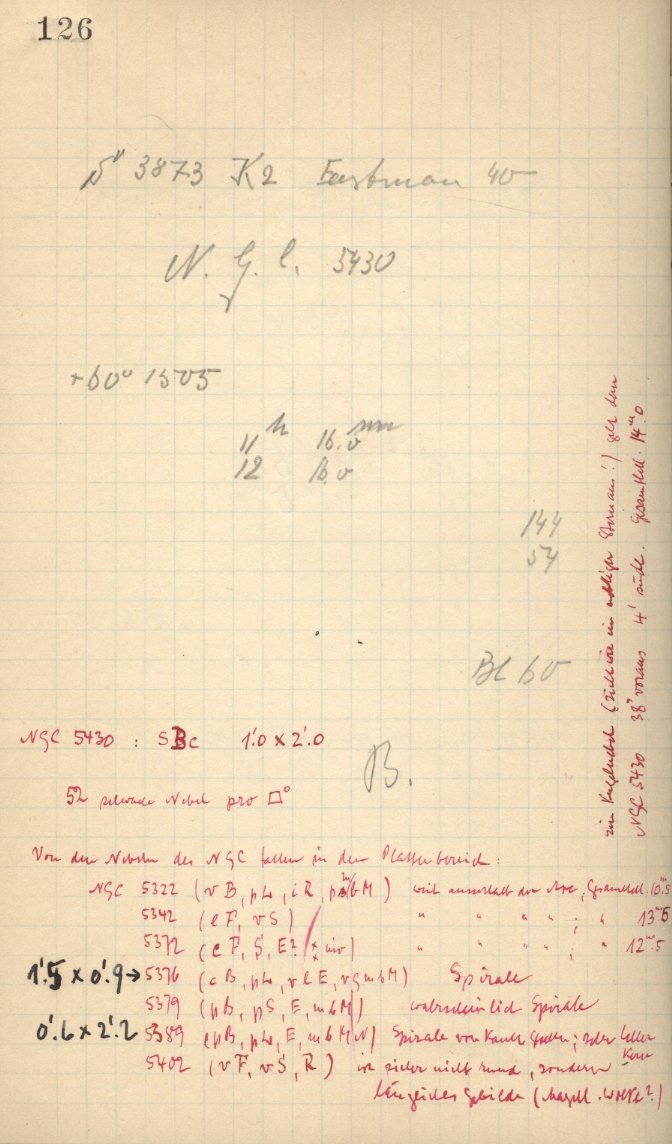 126
3873 K2 Eastman 40
N. G. C. 5430
+60° 1505
11 h 16.0 m
12 16.0
144
54
BC 60
NGC 5430 : SBc 1'.0 × 2'.0
B.
52 schwache Nebel pro □°
Von den Nebeln des NGC fallen in den Plattenbereich:
NGC 5322 (vB, pL, iR, psbM) weit ausserhalb der Axe, Gesamthell. 10m.5
5342 (eF, vS) " " " " ; " 13m.5
5372 (cF, S, E? inv) " " " " ; " 12m.5
1'.5 × 0'.9 → 5376 (cB, pL, vlE, vgmbM) Spirale
5379 (pB, pS, E, mbM) wahrscheinlich Spirale
0'.6 × 2'.2 5389 (pB, pL, E, mbMN) Spirale von Kante gesehen; sehr heller Kern
5402 (vF, vS, R) ist sicher nicht rund, sondern
längliches Gebilde (Magell. Wolke?)
ein Kugelnebel (sieht wie ein nebliger Stern aus!) geht dem
NGC 5430 38s voraus 4' südl. Gesamthell. 14m.0